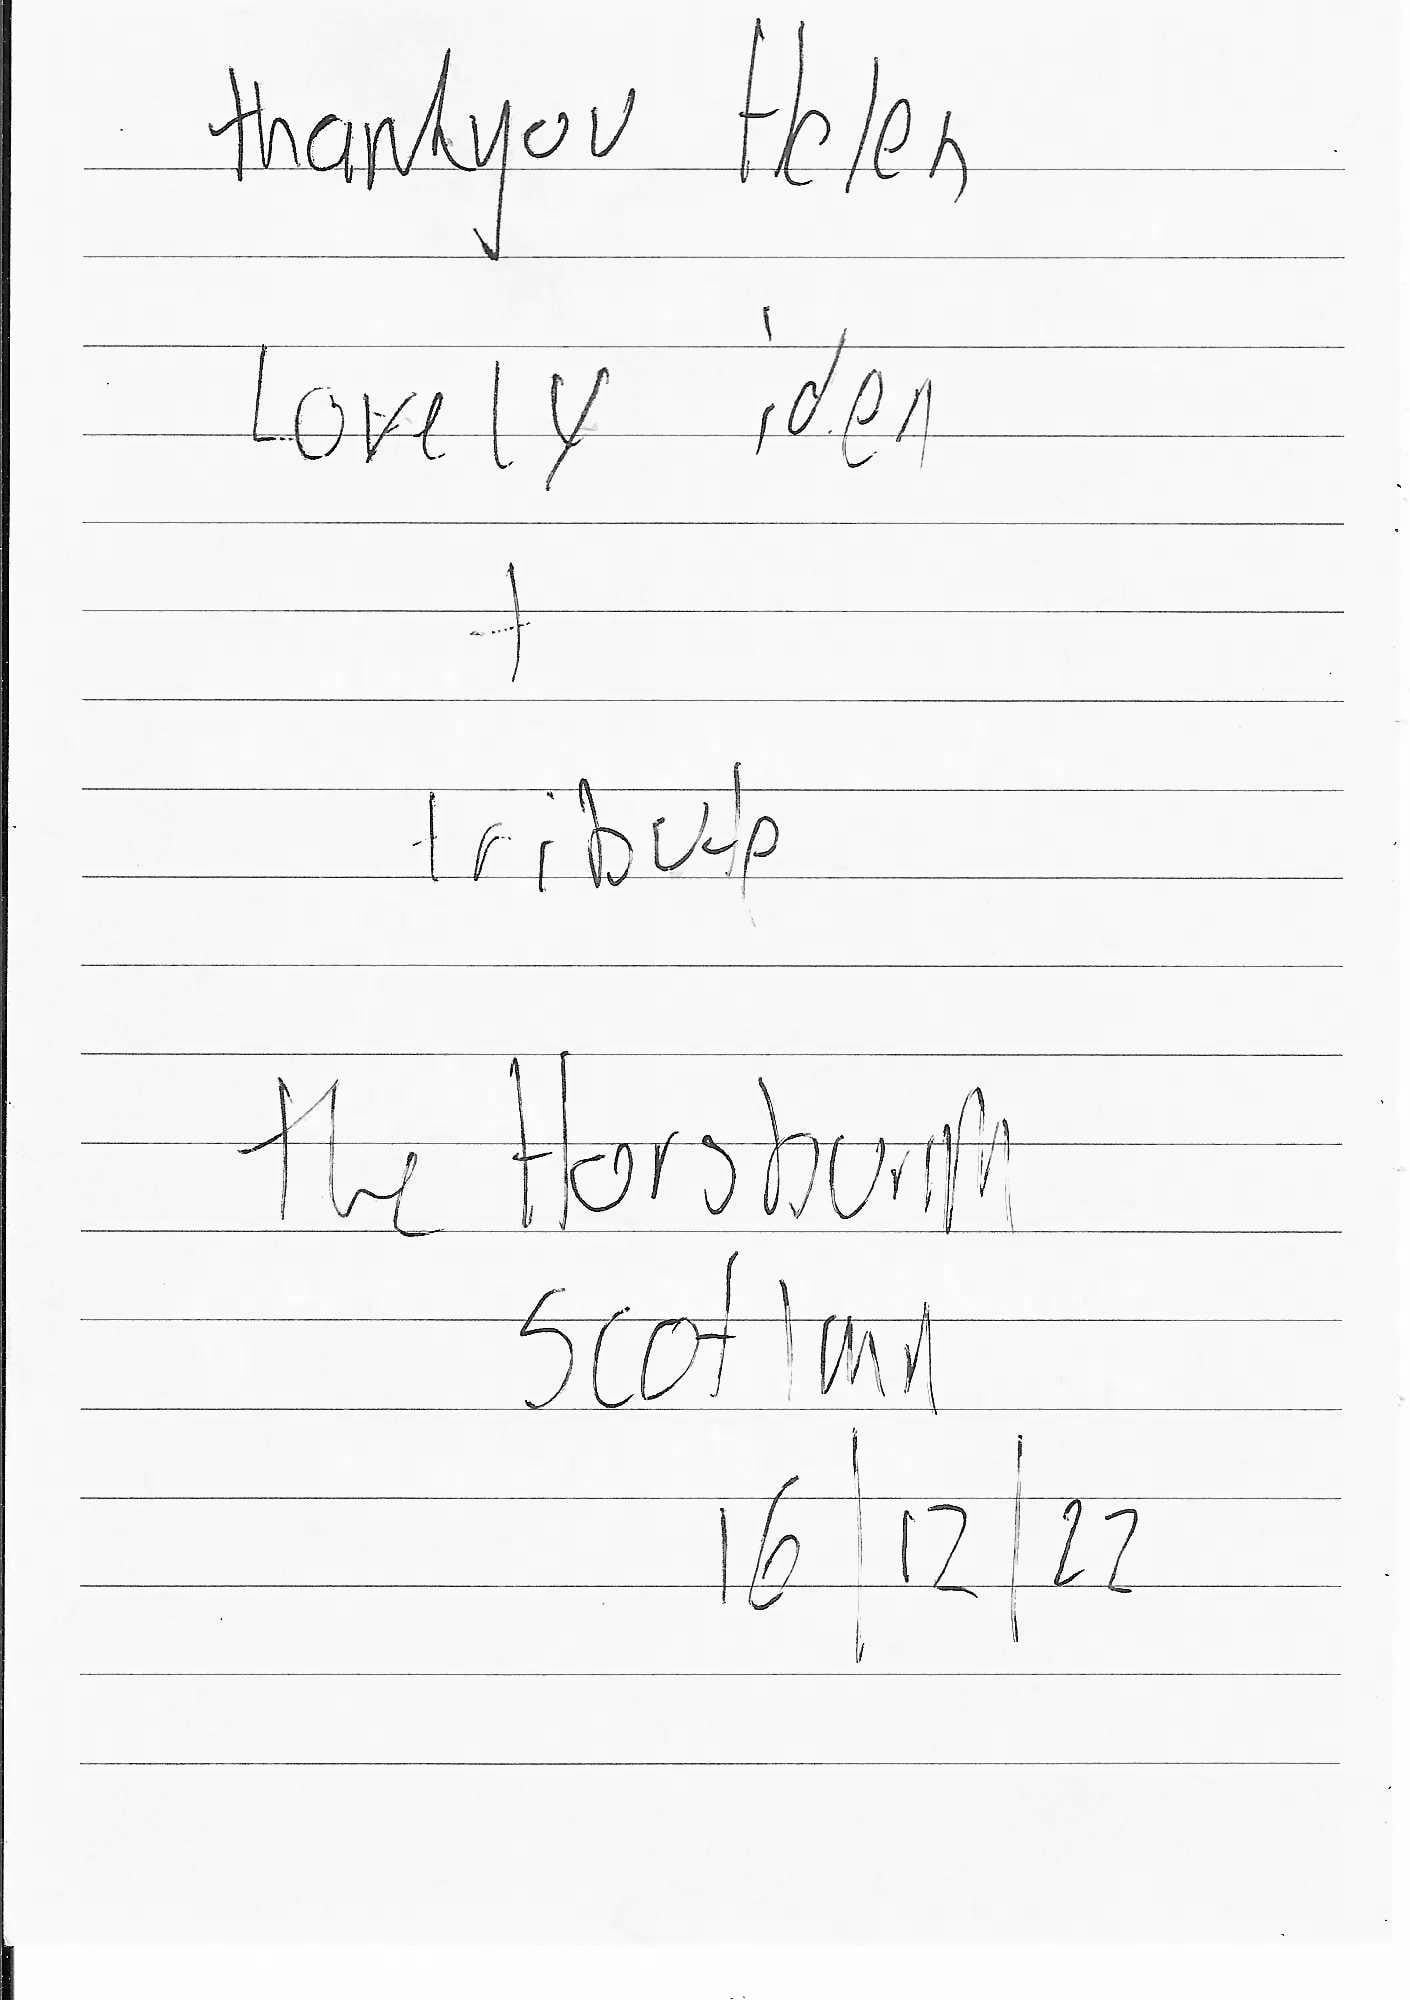 thankyou Helen
Lovely iden
+
tribute
the
Scotlann
16/12/22